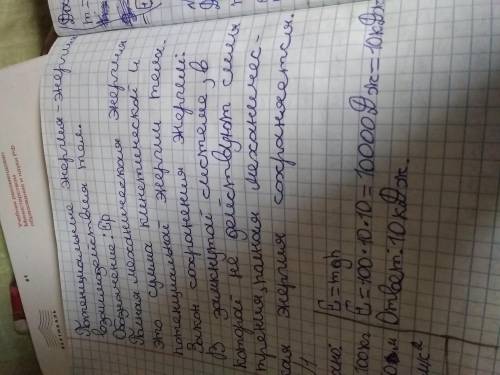 Дано
m=
Потенциальные энергия-энергия
взаимодействия тел.
Обозначение: Ep
Полная механическая энергия
это сумма кинетической и
потенциальной энергии тела.
Закон сохранения энергий.
В замкнутой системе, в
которой не действуют сила
трения, полная механичес-
кая энергия сохраняется.
E=mgh
100кг E=100·10·10=10000Дж=10кДж
Ответ: 10 кДж.
м/с²